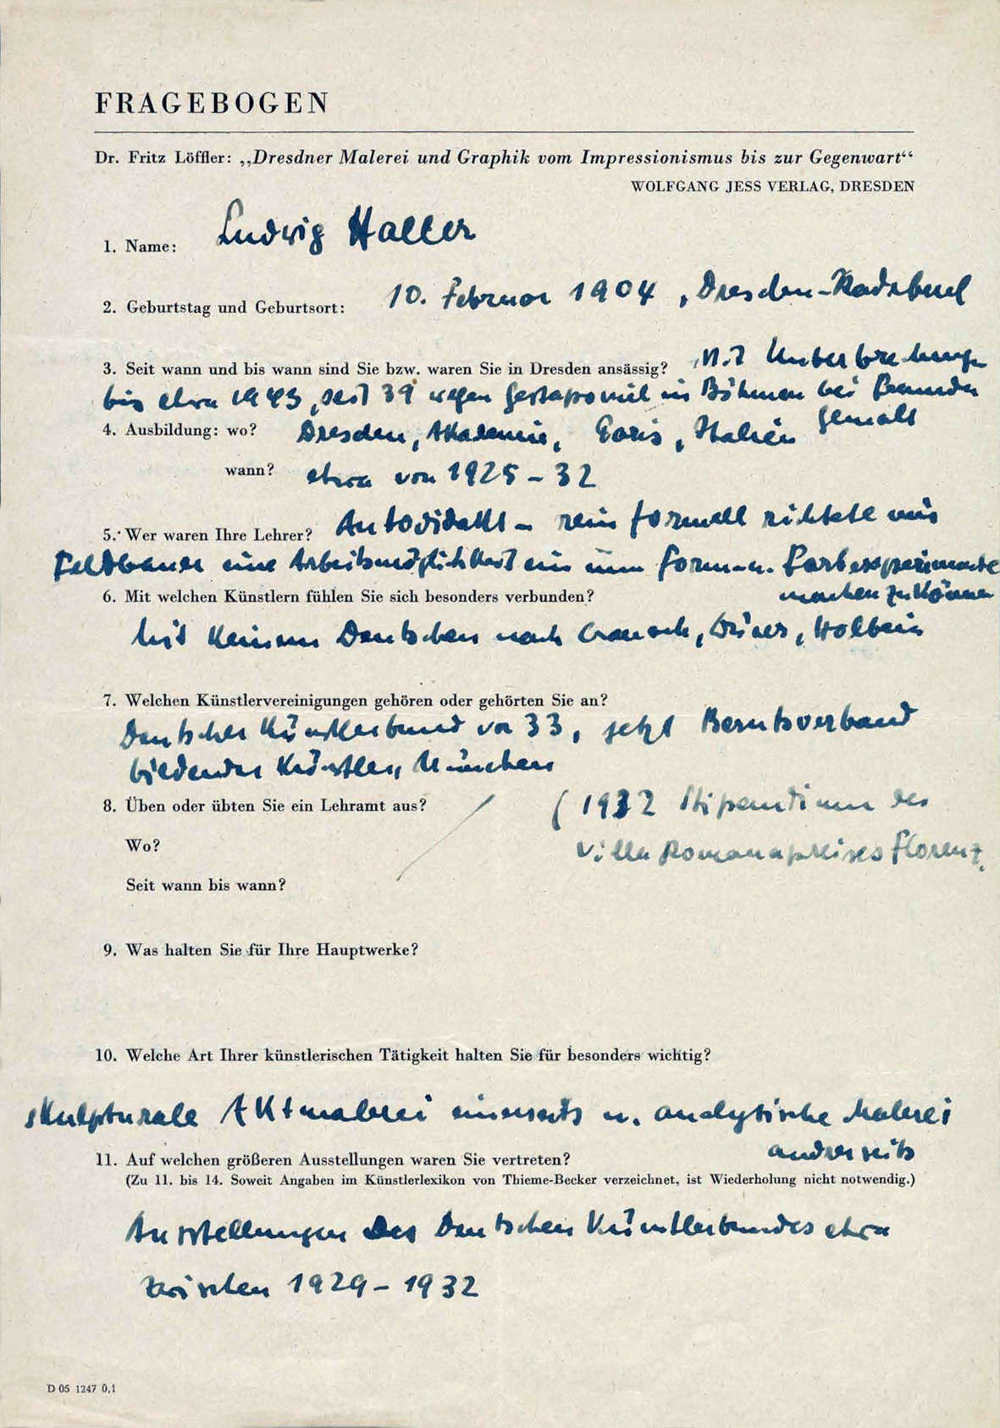 FRAGEBOGEN
Dr. Fritz Löffler: „Dresdner Malerei und Graphik vom Impressionismus bis zur Gegenwart“
WOLFGANG JESS VERLAG, DRESDEN
1. Name: Ludwig Haller
2. Geburtstag und Geburtsort: 10. Februar 1904, Dresden-Radebeul
3. Seit wann und bis wann sind Sie bzw. waren Sie in Dresden ansässig? Mit Unterbrechungen
bis etwa 1943, seit 39 wegen Gestapo viel in Böhmen bei Freunden
gemalt
4. Ausbildung: wo? Dresden, Akademie, Paris, Italien
wann? etwa von 1925 – 32
5. Wer waren Ihre Lehrer? Autodidakt – rein formell richtete mir
Feldbauer eine Arbeitsmöglichkeit ein um Form- u. Farbexperimente
machen zu können
6. Mit welchen Künstlern fühlen Sie sich besonders verbunden?
Mit keinem Deutschen nach Cranach, Dürer, Holbein
7. Welchen Künstlervereinigungen gehören oder gehörten Sie an?
Deutscher Künstlerbund vor 33, jetzt Berufsverband
bildender Künstler, München
8. Üben oder übten Sie ein Lehramt aus? (1932 Stipendium des
Wo? Villa Romanapreises Florenz
Seit wann bis wann?
9. Was halten Sie für Ihre Hauptwerke?
10. Welche Art Ihrer künstlerischen Tätigkeit halten Sie für besonders wichtig?
skulpturale Aktmalerei einerseits u. analytische Malerei
andrerseits
11. Auf welchen größeren Ausstellungen waren Sie vertreten?
(Zu 11. bis 14. Soweit Angaben im Künstlerlexikon von Thieme-Becker verzeichnet, ist Wiederholung nicht notwendig.)
Ausstellungen des Deutschen Künstlerbundes etwa
zwischen 1929 – 1932
D 05 1247 0,1